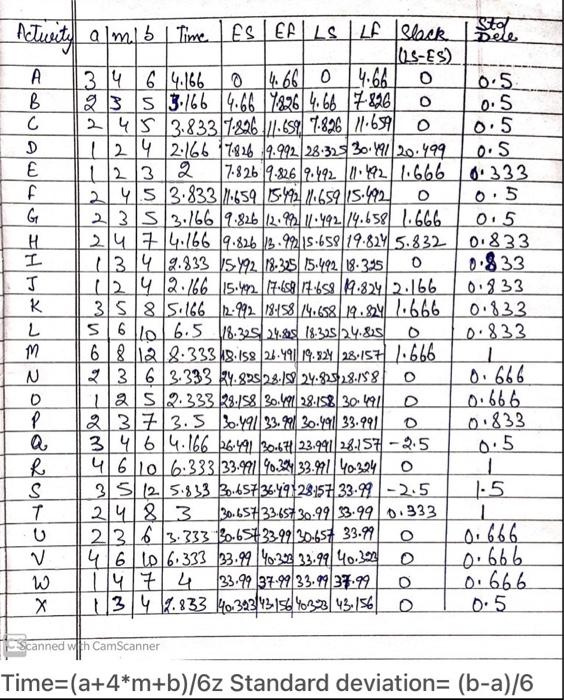 Activity a m b Time ES EF LS LF Slack (LS-ES) Std Dele
A 3 4 6 4.166 0 4.66 0 4.66 0 0.5
B 2 3 5 3.166 4.66 7.826 4.66 7.826 0 0.5
C 2 4 5 3.833 7.826 11.659 7.826 11.659 0 0.5
D 1 2 4 2.166 7.826 9.992 28.325 30.491 20.499 0.5
E 1 2 3 2 7.826 9.826 9.492 11.492 1.666 0.333
F 2 4 5 3.833 11.659 15.492 11.659 15.492 0 0.5
G 2 3 5 3.166 9.826 12.992 11.492 14.658 1.666 0.5
H 2 4 7 4.166 9.826 13.992 15.658 19.824 5.832 0.833
I 1 3 4 2.833 15.492 18.325 15.492 18.325 0 0.833
J 1 2 4 2.166 15.492 17.658 17.658 19.824 2.166 0.833
K 3 5 8 5.166 12.992 18.158 14.658 19.824 1.666 0.833
L 5 6 10 6.5 18.325 24.825 18.325 24.825 0 0.833
M 6 8 12 8.333 18.158 26.491 19.824 28.157 1.666 1
N 2 3 6 3.333 24.825 28.158 24.825 28.158 0 0.666
O 1 2 5 2.333 28.158 30.491 28.158 30.491 0 0.666
P 2 3 7 3.5 30.491 33.991 30.491 33.991 0 0.833
Q 3 4 6 4.166 26.491 30.671 23.991 28.157 -2.5 0.5
R 4 6 10 6.333 33.991 40.324 33.991 40.324 0 1
S 3 5 12 5.833 30.657 36.491 28.157 33.99 -2.5 1.5
T 2 4 8 3 30.657 33.657 30.99 33.99 0.333 1
U 2 3 6 3.333 30.657 33.99 30.657 33.99 0 0.666
V 4 6 10 6.333 33.99 40.323 33.99 40.323 0 0.666
W 1 4 7 4 33.99 37.99 33.99 37.99 0 0.666
X 1 3 4 2.833 40.323 43.156 40.323 43.156 0 0.5
CS Scanned with CamScanner
Time=(a+4*m+b)/6z Standard deviation= (b-a)/6